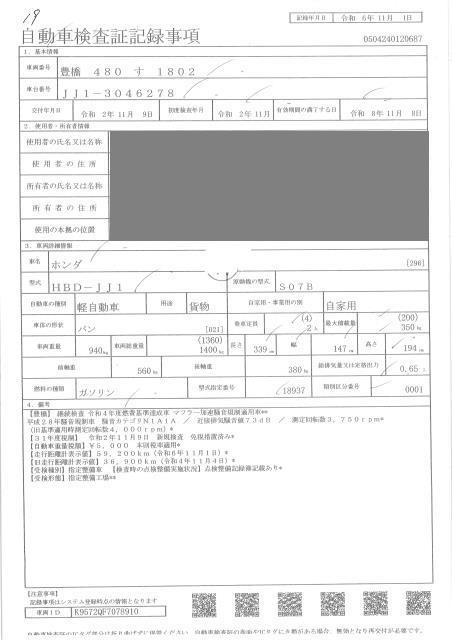 19
記録年月日 令和 6年11月 1日
自動車検査証記録事項
0504240120687
1．基本情報
車両番号 豊橋 480 す 1802
車台番号 JJ1-3046278
交付年月日 令和 2年11月 9日 初度検査年月 令和 2年11月 有効期間の満了する日 令和 8年11月 8日
2．使用者・所有者情報
使用者の氏名又は名称
使用者の住所
所有者の氏名又は名称
所有者の住所
使用の本拠の位置
3．車両詳細情報
車名 ホンダ [296]
型式 HBD-JJ1 原動機の型式 S07B
自動車の種別 軽自動車 用途 貨物 自家用・事業用の別 自家用
車体の形状 バン [021] 乗車定員 (4) 2人 最大積載量 (200) 350kg
車両重量 940kg 車両総重量 (1360) 1400kg 長さ 339cm 幅 147cm 高さ 194cm
前軸重 560kg 後軸重 380kg 総排気量又は定格出力 0.65L
燃料の種類 ガソリン 型式指定番号 18937 類別区分番号 0001
4．備考
【豊橋】 継続検査 令和4年度燃費基準達成車 マフラー加速騒音規制適用車**
平成28年騒音規制車 騒音カテゴリN1A1A ／ 近接排気騒音値73dB ／ 測定回転数3,750rpm*
(旧基準適用時測定回転数4,000rpm)*
【31年度規制】 令和2年11月9日 新規検査 免税措置済み*
【自動車重量税額】¥5,000 本則税率適用*
【走行距離計表示値】59,200km(令和6年11月1日)*
【旧走行距離計表示値】36,900km(令和4年11月4日)*
【受検種別】指定整備車 【検査時の点検整備実施状況】点検整備記録簿記載あり*
【受検形態】指定工場**
【注意事項】
記録事項はシステム登録時点の情報となります
車両ID K9572QF7078910